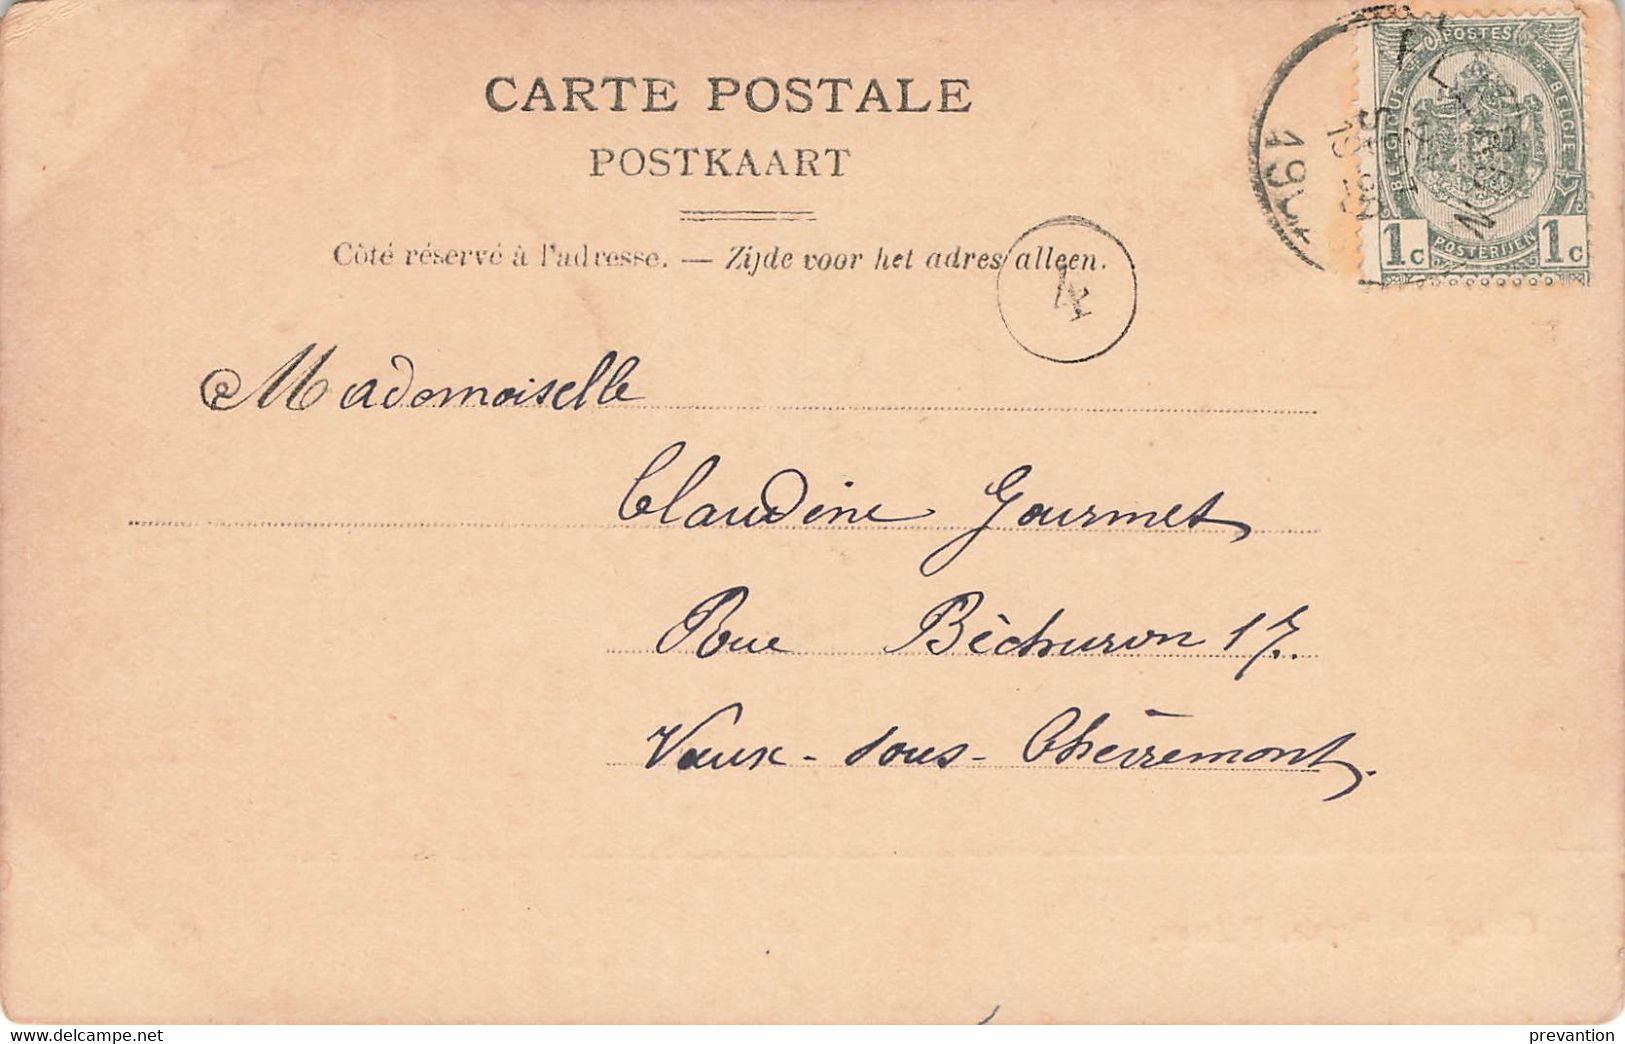 CARTE POSTALE
POSTKAART
Côté réservé à l'adresse. — Zijde voor het adres alleen.
POSTES
BELGIQUE
BELGIE
POSTERIJEN
1c
1c
4
Mademoiselle
Claudine Gourmet
Rue Bèchuron 17.
Vaux-sous-Chèvremont.
delcampe.net
prevantion